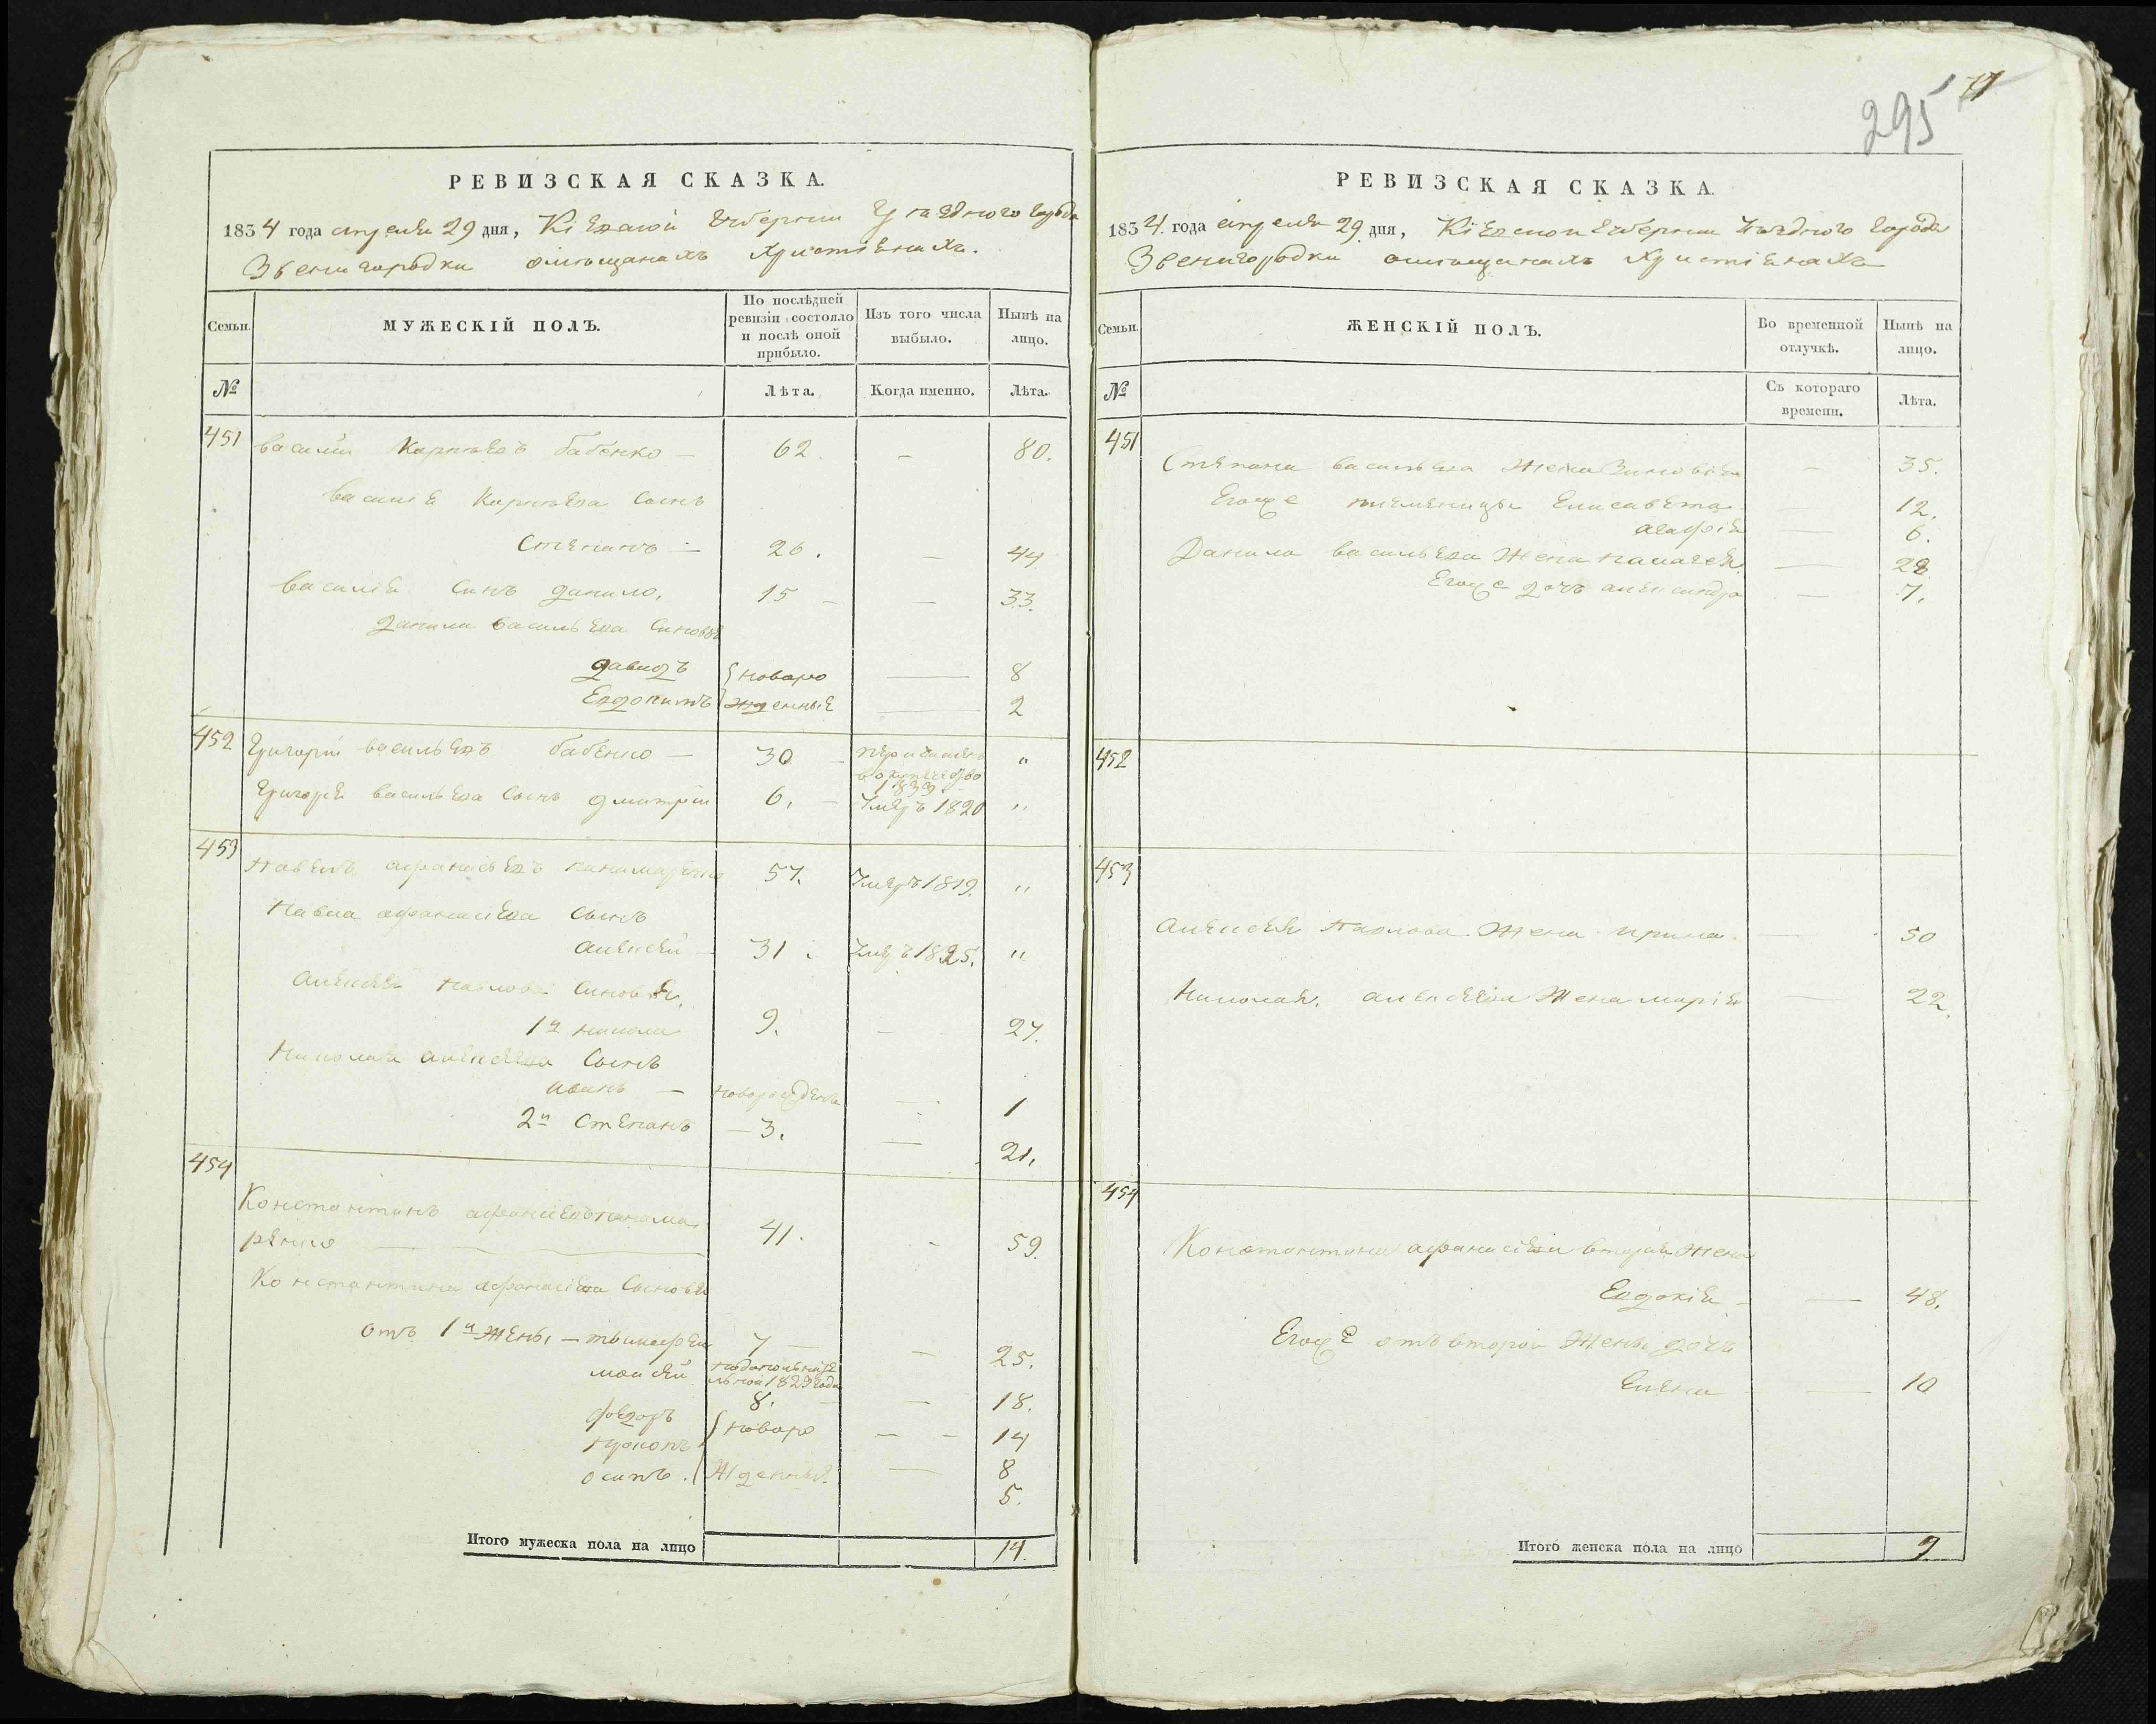 295
РЕВИЗСКАЯ СКАЗКА.
1834 года апреля 29 дня, Кіевской Губернии Уѣздного города
Звенигородки омѣщанахъ Христіянахъ.
Семьи.
МУЖЕСКІЙ ПОЛЪ.
По послѣдней ревизіи состояло и послѣ оной прибыло.
Изъ того числа выбыло.
Нынѣ на лицо.
№
Лѣта.
Когда именно.
Лѣта.
451 василий Карпоѣвъ бабенко — 62. — 80.
василiя Карпѣева Сынъ
Степанъ — 26. — 44
василія Синъ данило, 15 — — 33.
данила васильева Синовья
давидъ новоро — 8
Евдокимъ жденныя — 2
452 Григорій васильевъ бабенко — 30 — причисленъ "
в купечество
1833
Григорія васильева Сынъ дмитрій 6. — Умеръ 1820 "
453
Павелъ афанасіевъ панамаренко 57. Умеръ 1819. "
Павла афанасіева Сынъ
алексей — 31. Умеръ 1825. "
алексея Павлова Синовья,
1й николай 9. — 27.
Николая алексеева Сынъ
иванъ — новорожденъ — 1
2й Степанъ — 3. — 21.
454
Константинъ афанасіевъ панама
ренко 41. - 59.
Константина афанасіева Сыновья
отъ 1й жены, — тимофей 7 — 25.
моисей 8. — 18.
федоръ новоро — — 14
прокопъ — 8
осипъ. жденныя 5.
Итого мужеска пола на лицо 14.
РЕВИЗСКАЯ СКАЗКА.
1834 года апреля 29 дня, Кіевской Губернии Уѣздного города
Звенигородки омѣщанахъ Христіянахъ
Семьи.
ЖЕНСКІЙ ПОЛЪ.
Во временной отлучкѣ.
Нынѣ на лицо.
№
Съ котораго времени.
Лѣта.
451
Степана васильева жена Зиновія — 35.
Егоже племеницы Елисавета — 12.
агафія — 6.
Данила васильева жена палагея — 28
Егоже дочъ александра — 7.
452
453
алексея Павлова жена ирина — 50
Николая, алексеева жена марія — 22.
454
Константина афанасіева вторая жена
Евдокія — 48.
Егоже отъ второй жены дочъ
Елена — 10
Итого женска пола на лицо 9